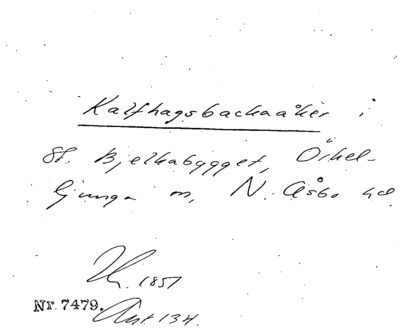 Kalfhagsbackaåker i
St. Bjelkabygget, Örkel-
ljunga sn, N. Åsbo hd
Nr. 7479.
1851
Ant. 134.